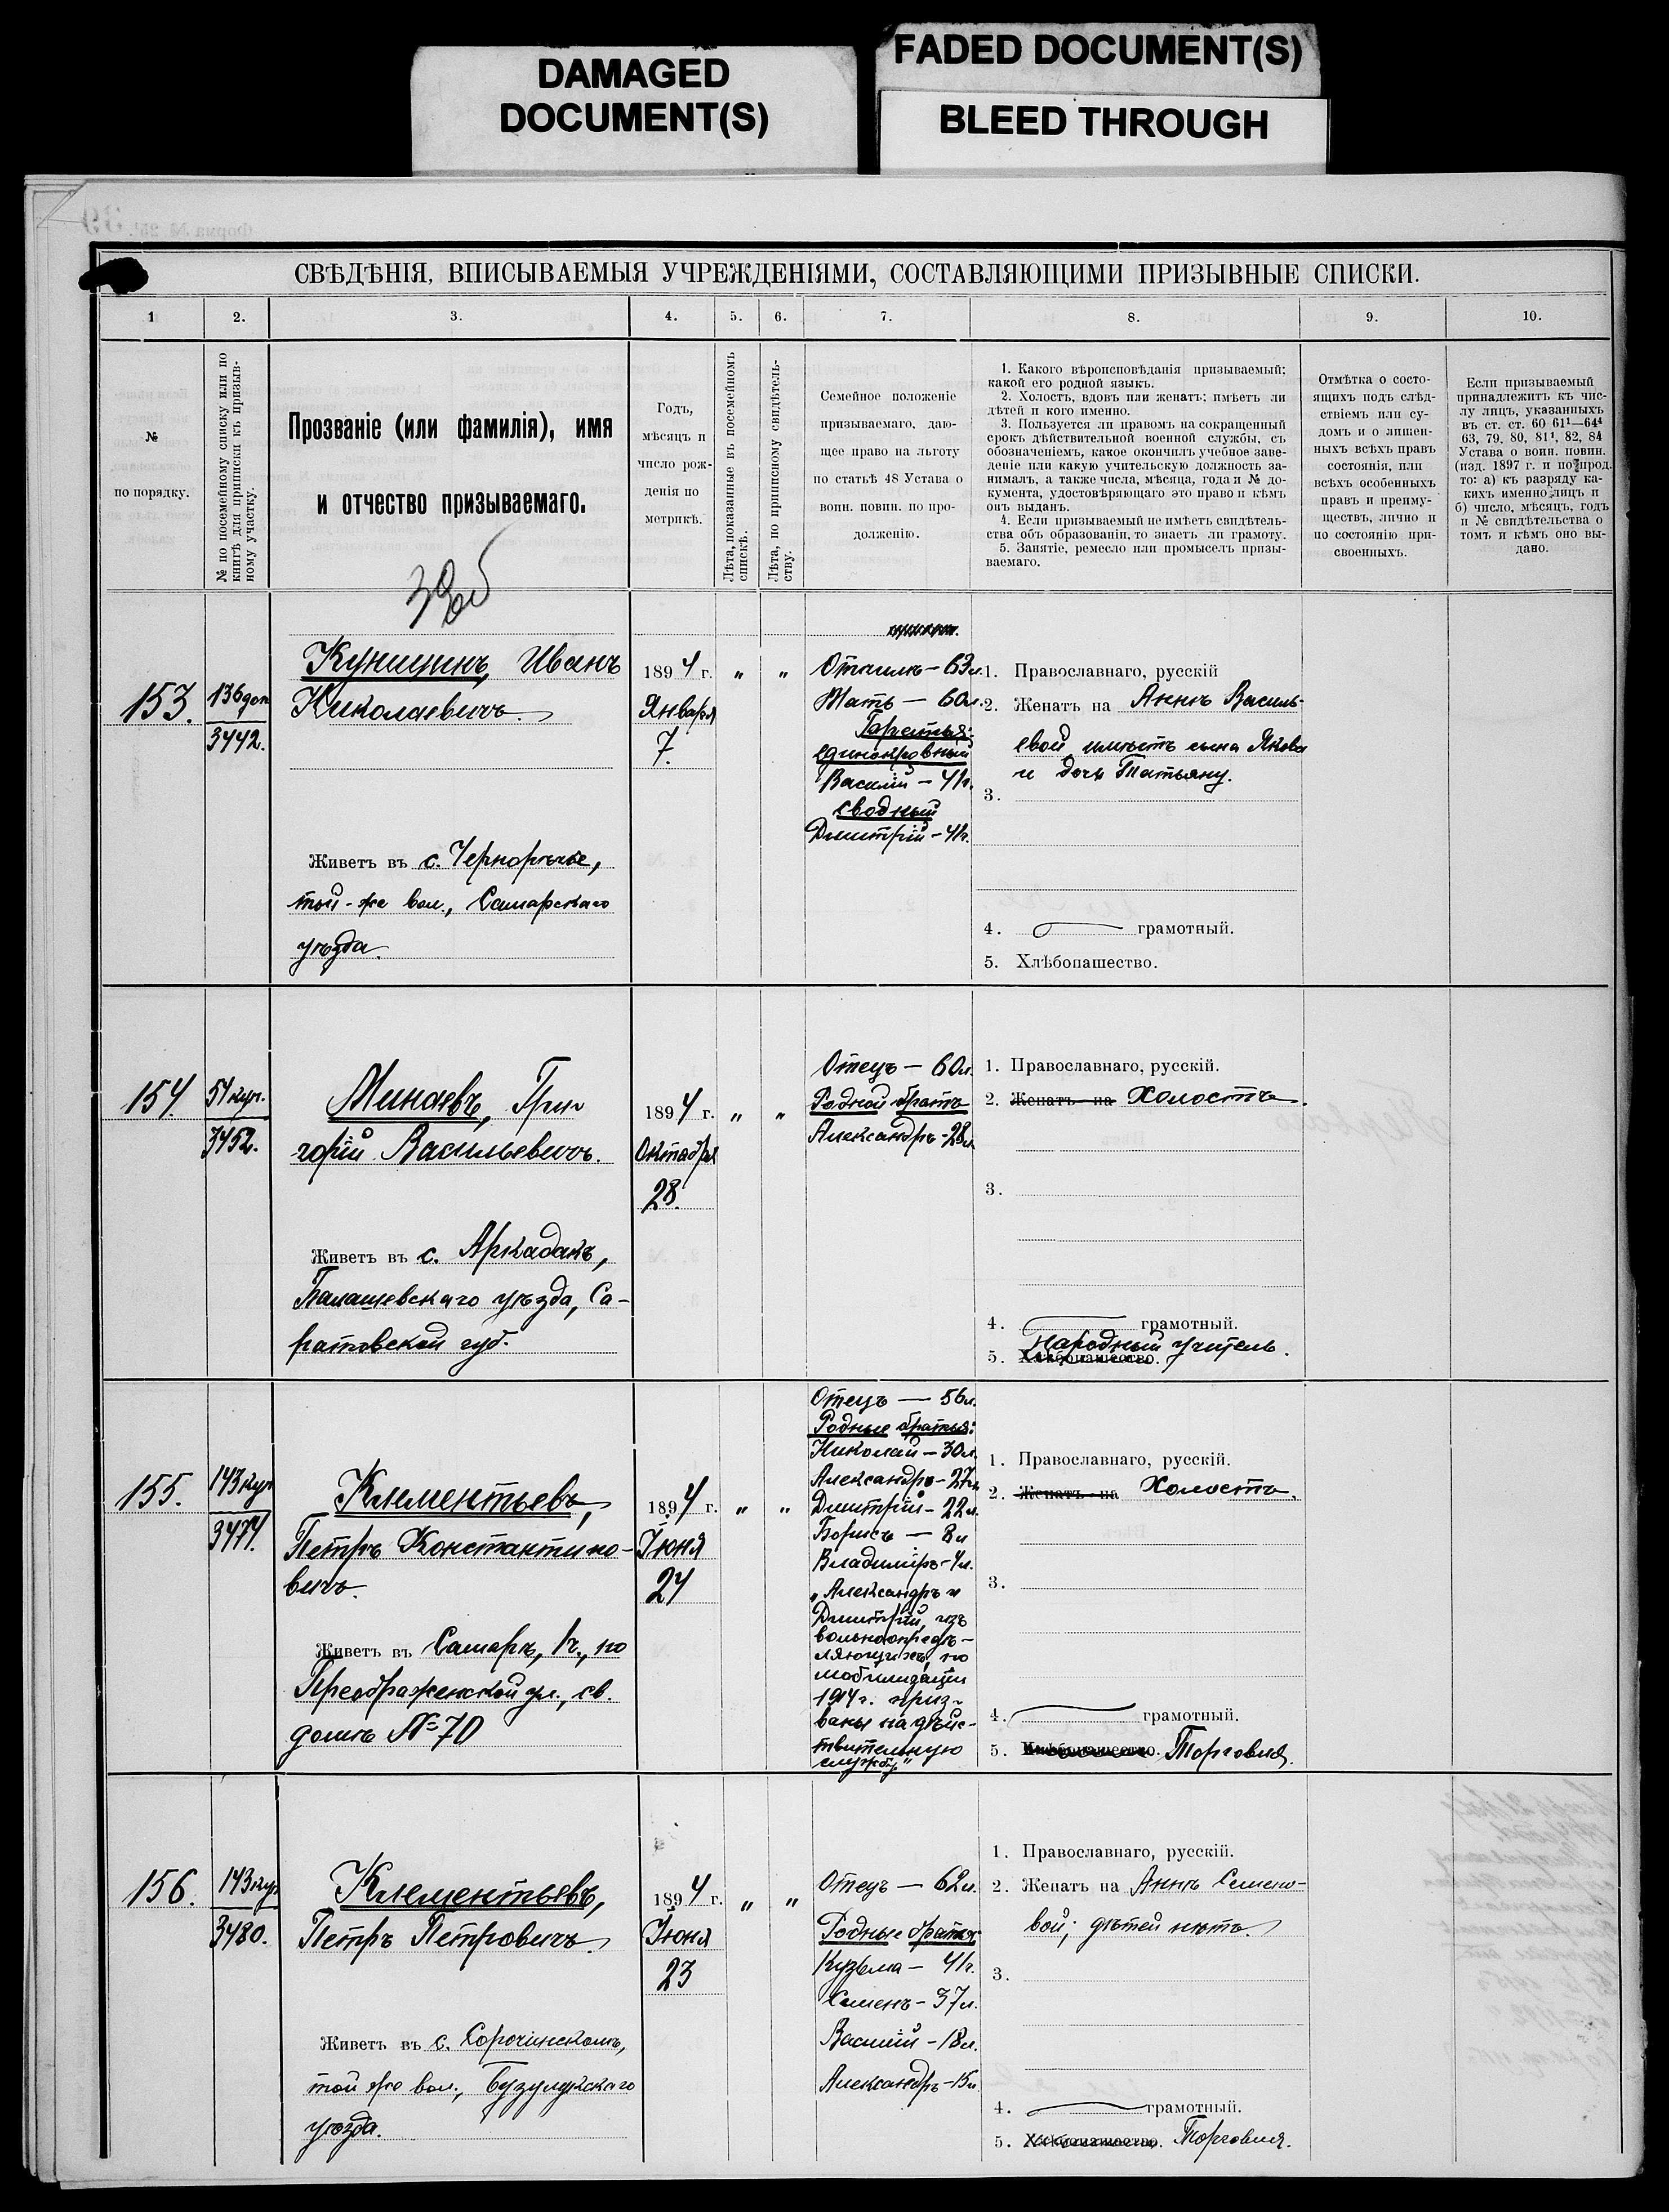 DAMAGED
DOCUMENT(S)
FADED DOCUMENT(S)
BLEED THROUGH
СВѢДѢНІЯ, ВПИСЫВАЕМЫЯ УЧРЕЖДЕНІЯМИ, СОСТАВЛЯЮЩИМИ ПРИЗЫВНЫЕ СПИСКИ.
1
2.
3.
4.
5.
6.
7.
8.
9.
10.
№
по порядку.
№ по посемейному списку или по
книгѣ для приписки къ призыв-
ному участку.
Прозваніе (или фамилія), имя
и отчество призываемаго.
Годъ,
мѣсяцъ и
число рож-
денія по
метрикѣ.
Лѣта, показанные въ посемейномъ
спискѣ.
Лѣта, по приписному свидѣтель-
ству.
Семейное положеніе
призываемаго, даю-
щее право на льготу
по статьѣ 48 Устава о
воин. повин. по про-
долженію.
1. Какого вѣроисповѣданія призываемый;
какой его родной языкъ.
2. Холостъ, вдовъ или женатъ; имѣетъ ли
дѣтей и кого именно.
3. Пользуется ли правомъ на сокращенный
срокъ дѣйствительной военной службы, съ
обозначеніемъ, какое окончилъ учебное заве-
деніе или какую учительскую должность за-
нималъ, а также числа, мѣсяца, года и № до-
кумента, удостовѣряющаго это право и кѣмъ
онъ выданъ.
4. Если призываемый не имѣетъ свидѣтель-
ства объ образованіи, то знаетъ ли грамоту.
5. Занятіе, ремесло или промыселъ призы-
ваемаго.
Отмѣтка о состо-
ящихъ подъ слѣд-
ствіемъ или су-
домъ и о лишен-
ныхъ всѣхъ правъ
состоянія, или
всѣхъ особенныхъ
правъ и преиму-
ществъ, лично и
по состоянію при-
своенныхъ.
Если призываемый
принадлежитъ къ чис-
лу лицъ, указанныхъ
въ ст. ст. 60 61¹—64⁴
63, 79, 80, 81¹, 82, 84
Устава о воин. повин.
(изд. 1897 г. и по прод.
то: а) къ разряду ка-
кихъ именно лицъ и
б) число, мѣсяцъ, годъ
и № свидѣтельства о
томъ и кѣмъ оно вы-
дано.
39об
153.
136 доп
3442.
Куницинъ, Иванъ
Николаевичъ
Живетъ въ с. Чернорѣчье,
той-же вол., Самарскаго
уѣзда.
1894 г.
Января
7.
"
"
Отчимъ — 63 л.
Мать — 60 л.
Братья:
единокровный
Василій — 41 г.
сводный
Димитрій — 41 г.
1. Православнаго, русскій
2. Женатъ на Аннѣ Василь-
евой имѣетъ сына Якова
и дочь Татьяну.
3.
4. грамотный.
5. Хлѣбопашество.
154.
54 куп.
3452.
Минаевъ, Гри-
горій Васильевичъ.
Живетъ въ с. Аркадакъ,
Балашевскаго уѣзда, Са-
ратовской губ.
1894 г.
Октября
28.
"
"
Отецъ — 60 л.
Родной братъ
Александръ - 28 л.
1. Православнаго, русскій.
2. Женатъ на Холостъ.
3.
4. грамотный.
5. Хлѣбопашество. Народный учитель.
155.
143 куп
3474.
Клементьевъ,
Петръ Константино-
вичъ.
Живетъ въ Самарѣ, 1 ч., по
Преображенской ул., св.
домъ № 70
1894 г.
Іюня
24
"
"
Отецъ — 56 л.
Родные братья:
Николай — 30 л.
Александръ - 27 л.
Димитрій - 22 л.
Борисъ — 8 л
Владиміръ - 4 л.
„Александръ и
Димитрій, изъ
вольноопредѣ-
ляющихъ, по
мобилизаціи
1914 г. приз-
ваны на дѣйс-
твительную
службу"
1. Православнаго, русскій.
2. Женатъ на Холостъ.
3.
4. грамотный.
5. Хлѣбопашество. Торговля.
156.
143 куп
3480.
Клементьевъ,
Петръ Петровичъ.
Живетъ въ с. Сорочинскомъ,
той же вол., Бузулукскаго
уѣзда.
1894 г.
Іюня
23
"
"
Отецъ — 62 л.
Родные братья:
Кузьма — 41 г.
Семенъ - 37 л.
Василій - 18 л.
Александръ - 15 л
1. Православнаго, русскій.
2. Женатъ на Аннѣ Семено-
вой; дѣтей нѣтъ.
3.
4. грамотный.
5. Хлѣбопашество. Торговля.